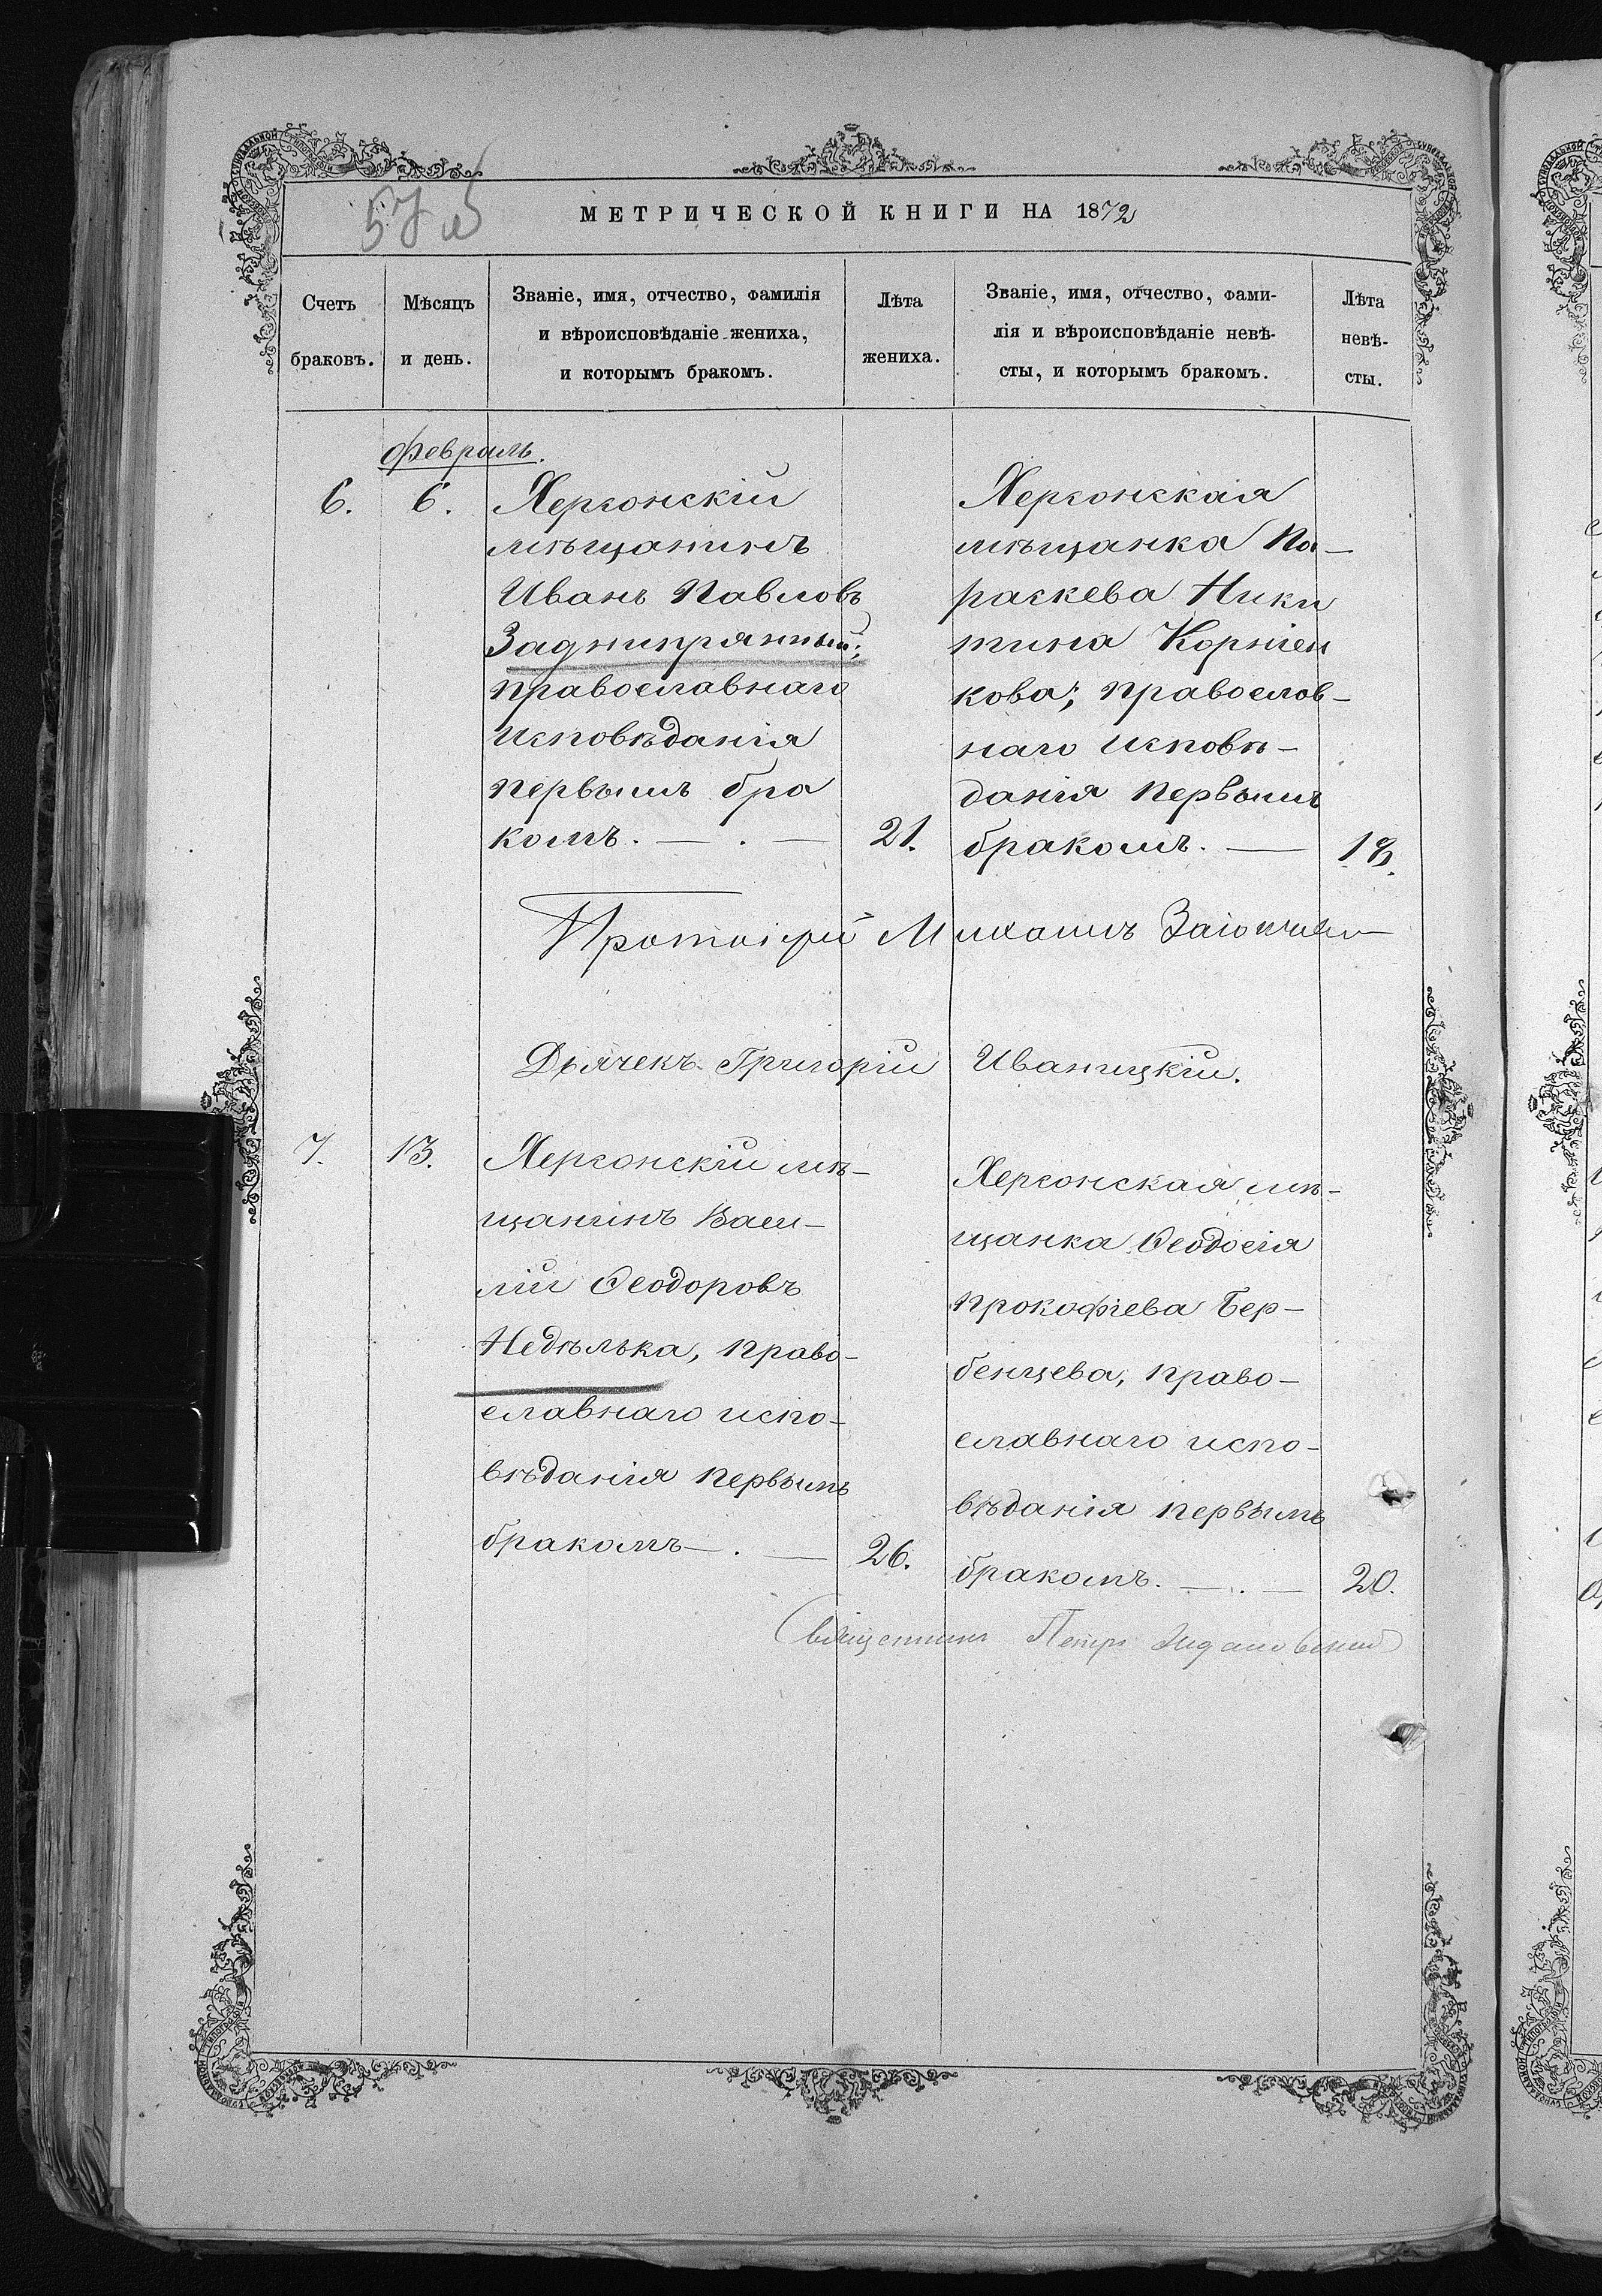 МЕТРИЧЕСКОЙ КНИГИ НА 1872
Счетъ браковъ.
Мѣсяцъ и день.
Званіе, имя, отчество, фамилія
и вѣроисповѣданіе жениха,
и которымъ бракомъ.
Лѣта жениха.
Званіе, имя, отчество, фами-
лія и вѣроисповѣданіе невѣ-
сты, и которымъ бракомъ.
Лѣта невѣ-
сты.
Февраль.
6.
6.
Херсонскій
мѣщанинъ
Иванъ Павловъ
Заднипрянный;
православнаго
исповѣданія
первымъ бра
комъ. — . —
21.
Херсонская
мѣщанка Па-
раскева Ники
тина Корніен
кова; православ-
наго исповѣ-
данія первымъ
бракомъ. —
18.
Протоіерей Михаилъ
Дьячекъ Григорій Иваницкій.
7.
13.
Херсонскій мѣ-
щанинъ Васи-
лій Ѳеодоровъ
Недѣлька, право-
славнаго испо-
вѣданія первымъ
бракомъ — . —
26.
Херсонская мѣ-
щанка Ѳеодосія
Прокофіева Бер-
бенцева, право-
славнаго испо-
вѣданія первымъ
бракомъ. — . —
20.
Священникъ Петръ